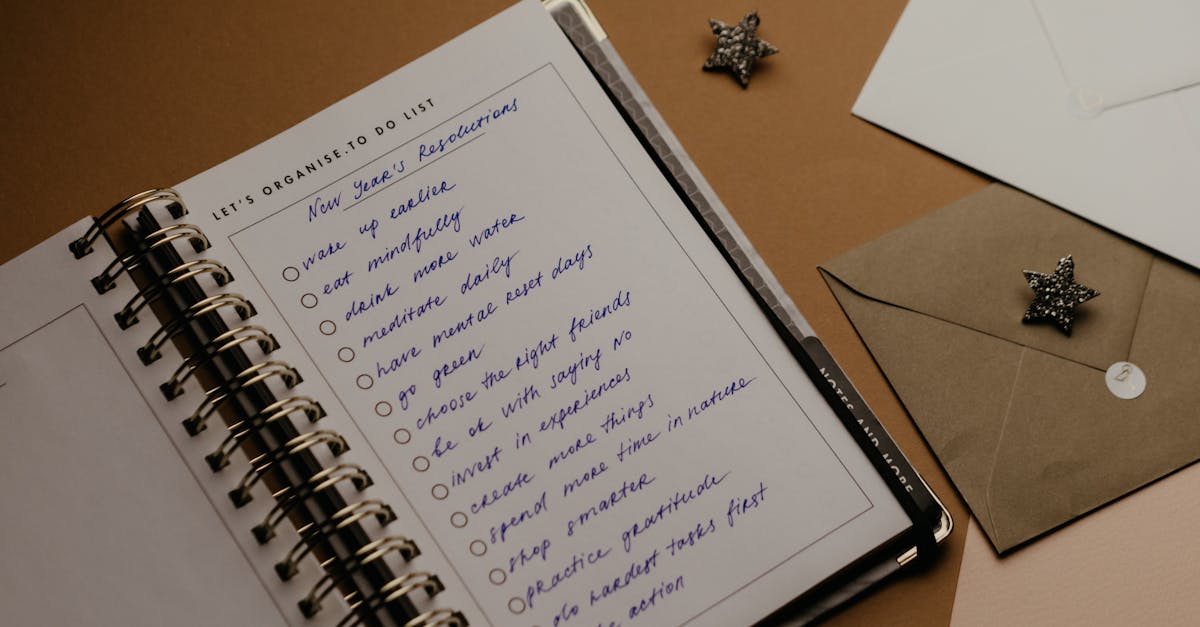 LET'S ORGANISE.TO DO LIST
New Year's Resolutions
wake up earlier
eat mindfully
drink more water
meditate daily
have mental reset days
go green
choose the right friends
be ok with saying no
invest in experiences
create more things
spend more time in nature
shop smarter
practice gratitude
do hardest tasks first
action
NOTES AND MORE